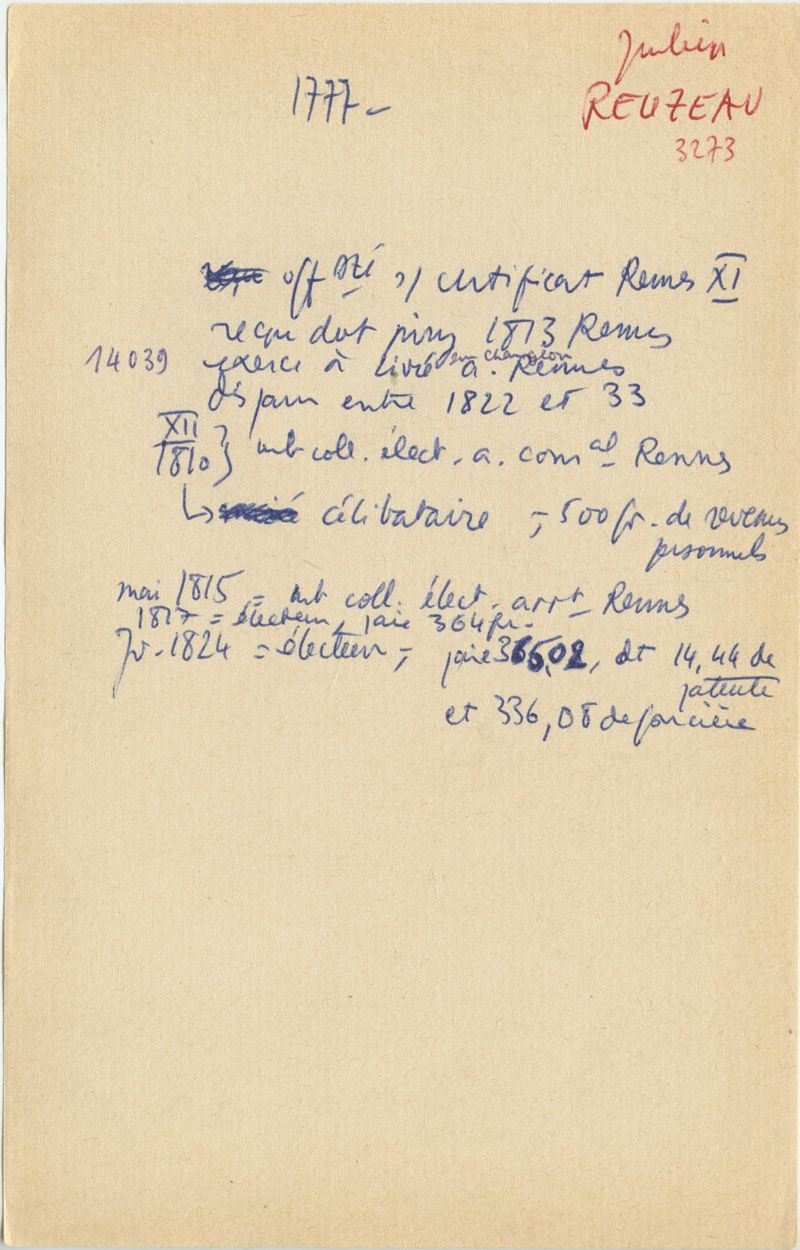 Julien
REUZEAU
3273
1777 –
off Sté s/ certificat Rennes XI
reçu dot jury 1813 Rennes
14039 exerce à Livré a. Rennes
en changlon
disparu entre 1822 et 33
XII
1810 } mb coll. élect. a. comal Rennes
↳ célibataire – 500 fr. de revenus
personnels
mai 1815 = mb coll. élect. arrt Rennes
1817 = électeur, paie 364 fr.
fr. 1824 = électeur – paie 365,02, dt 14,44 de
patente
et 336,08 de foncière